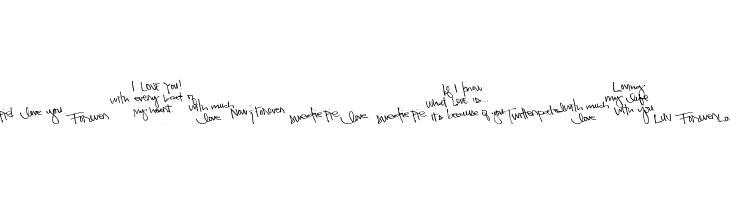 love you
Forever
I Love You!
with every beat of
my heart
with much
love
Now & Forever
sweetie pie
love
sweetie pie
If I know
what love is...
it is because of you
with much
love
Loving
my life
with you
Luv
Forever